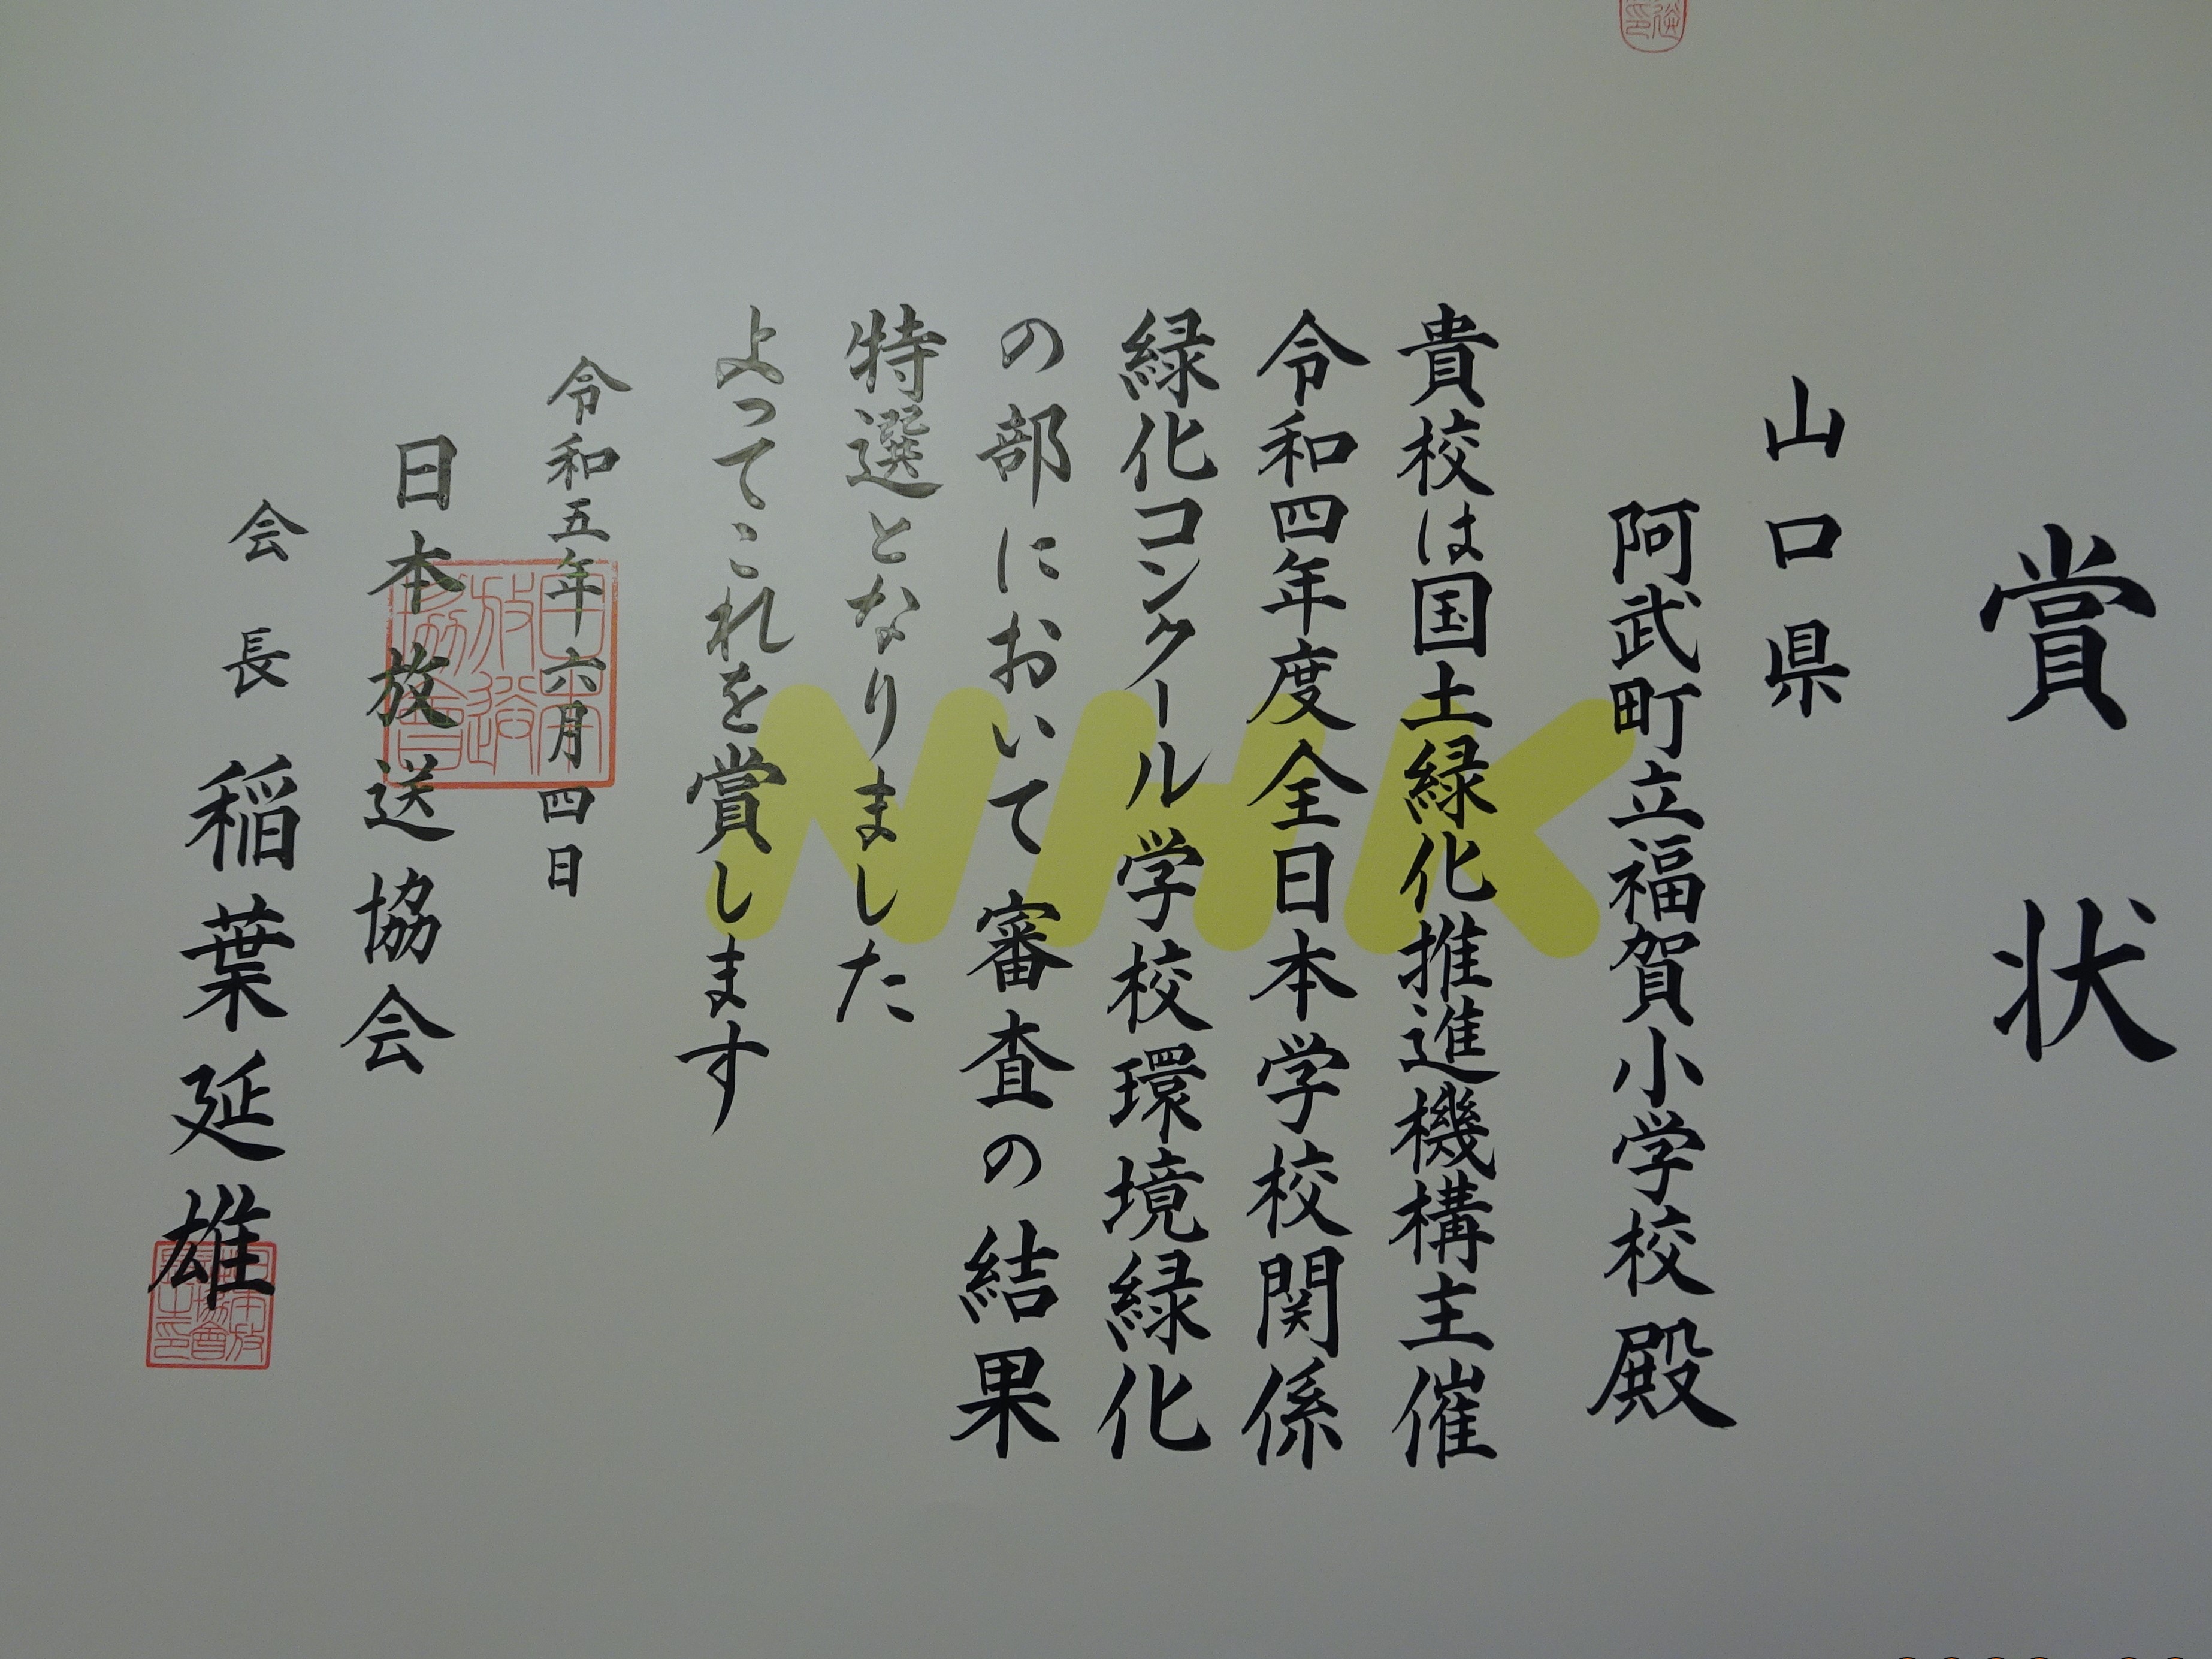 賞状
山口県
阿武町立福賀小学校殿
貴校は国土緑化推進機構主催
令和四年度全日本学校関係
緑化コンクール学校環境緑化
の部において審査の結果
特選となりました
よってこれを賞します
令和五年六月四日
日本放送協会
会長 稲葉延雄
NHK